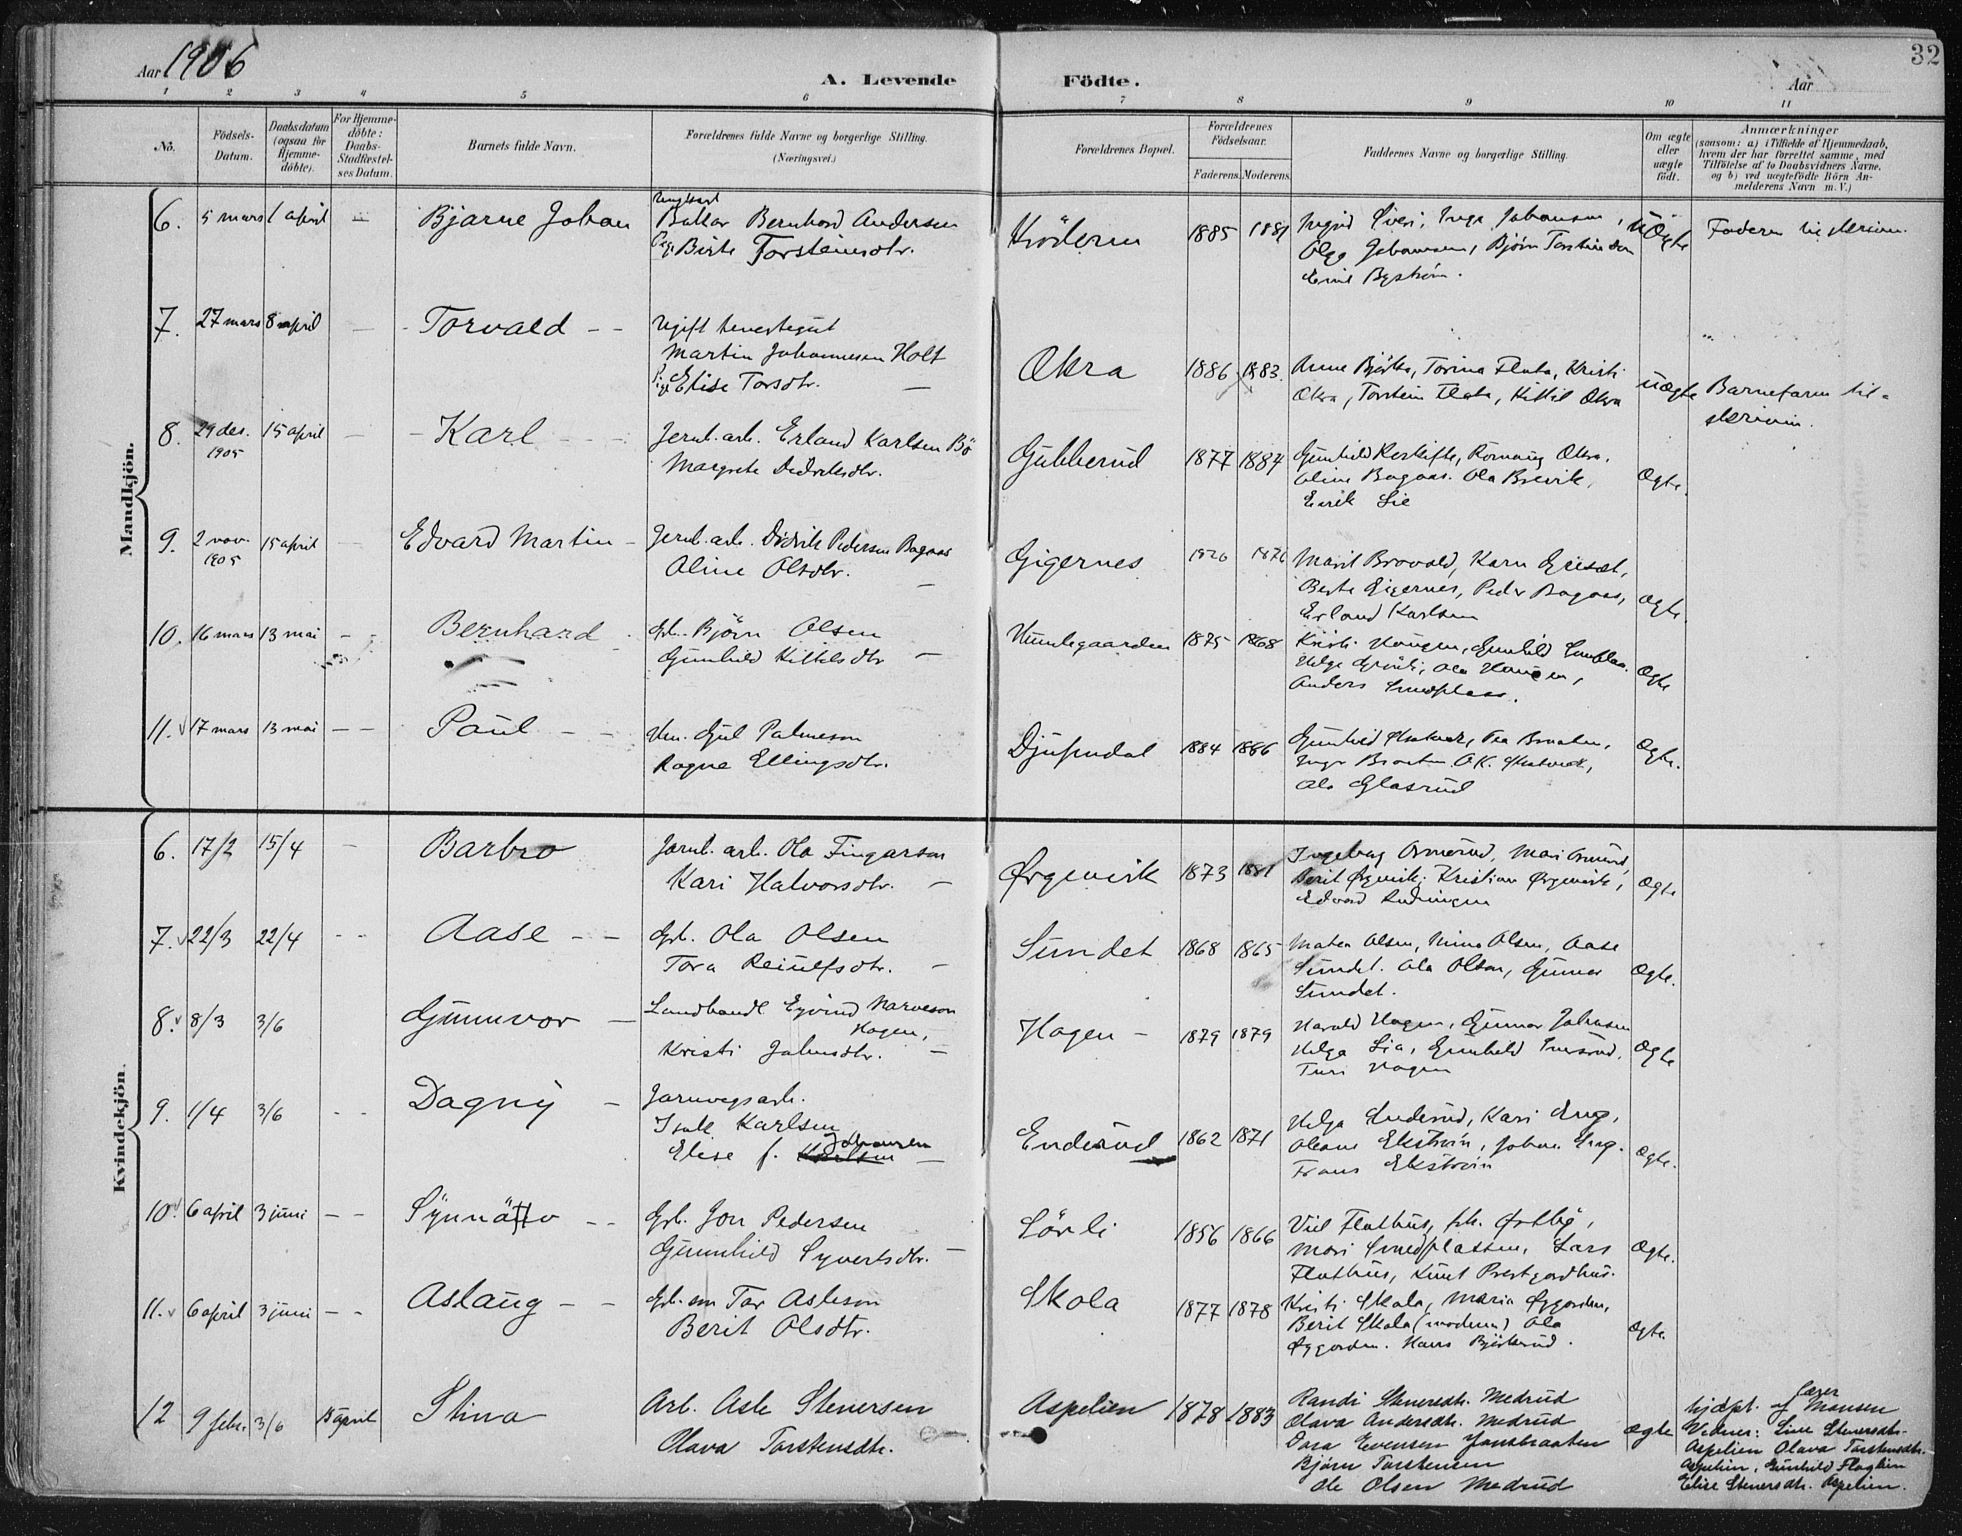 32
Aar 1906
A. Levende Födte.
Aar
1 2 3 4 5 6 7 8 9 10 11
No.
Födsels-Datum.
Daabsdatum (ogsaa for Hjemme-döbte).
For Hjemme-döbte: Daabs-Stadfæstel-ses Datum.
Barnets fulde Navn.
Forældrenes fulde Navne og borgerlige Stilling.
(Næringsvei.)
Forældrenes Bopæl.
Forældrenes Födselsaar.
Faderens. Moderens.
Faddernes Navne og borgerlige Stilling.
Om ægte eller uægte födt.
Anmærkninger
(saasom: a) i Tilfælde af Hjemmedaab, hvem der har forrettet samme, med Tilföielse af to Daabsvidners Navne, og b) ved uægtefödte Börn Anmelderens Navn m. V.)
Mandkjön.
6. 5 mars 1 april — Bjarne Johan
Ungkarl
Baltzar Bernhard Andersen
Pige Birte Torsteinsdtr.
Kröderen 1885 1881
Ingrid Inga Johansen,
Olga Johansen, Bjørn Torstensen
Emil Bystrøm.
uÆgte
Faderen
7. 27 mars 8 april — Torvald
Ugift tenestegut
Martin Johannesen Holt
Pige Elise Torsdtr.
Økra 1886 1883.
Anne Torina Flata, Kristi
Økra, Torstein Flata, Kittil Økra
uægte
Barnefaren til-
8. 29 des. 1905 15 april — Karl
Jernb. arb. Erland Karlsen Bö
Margrete Didriksdtr.
Gubberud 1877 1884
Gunhild Romaug Økra.
Oline Bagaas. Ola Brevik,
Eirik Lie
Ægte.
9. 2 nov. 1905 15 april — Edvard Martin
Jernb. arb. Didrik Pedersen Bagaas
Aline Olsdtr.
Gigernes 1876
Marit Brovold, Karn
Berte Gigernes, Peder Bagaas,
Erland Karlsen
Ægte.
10. 16 mars 13 mai — Bernhard
Gb. Björn Olsen
Gunhild Kittelsdtr
Humlegaarden 1875 1868
Kristi Haugen, Gunhild
Helge Ola Haugen,
Anders Smedplass.
Ægte
11. 17 mars 13 mai — Paul
Hm. Gul Palmeson
Ragne Ellingsdtr.
Djupedal 1884 1886
Gunhild Tea Braaten,
Inger Braaten O.K.
Ola Glasrud
Ægte.
Kvindekjön.
6. 17/2 15/4 — Barbro
Jarnb. arb. Ola Fingarson
Kari Halvorsdtr.
Ørgenvik 1873 1881
Ingeborg Ormerud, Mari Ormerud,
Berit Ørgenvik, Kristian Ørgenvik,
Edvard
Ægte
7. 22/3 22/4 — Aase
Gb. Ola Olsen
Tora Reiulfsdtr.
Sundet 1868 1865
Matea Olsen, Nina Olsen, Aase
Sundet. Ola Olson, Gunnar
Sundet.
Ægte.
8. 8/3 3/6 Gunnvor
Landhandl Eyvind Narveson
Hagen,
Kristi Johnsdtr.
Hagen 1879 1879
Harald Hagen, Gunnar Johnsen
Helga Lia, Gunhild
Turi Hagen
Ægte
9. 1/4 3/6 Dagny
Jarnvegsarb.
Isak Karlsen
Elise f. Johansen
Enderud 1862 1871
Helga Enderud, Kari Eng,
Oleane Ekström, Johan Eng.
Frans Ekström
Ægte.
10. 6 april 3 juni — Synnøv
Gb. Jon Pedersen
Gunnhild Syvertsdtr.
Sörli 1856 1866
Viel Flathus, frk. Østby,
Mari Smedplassen, Lars
Flathus, Knut Prestgardhus.
Ægte.
11. 6 april 3 juni — Aslaug
Gb. søn Tor Asleson
Berit Olsdtr.
Skola 1877 1878
Kristi Skola, Maria Øygarden,
Berit Skola (modern) Ola
Øygarden. Hans Björkerud.
Ægte.
12 9 febr. 3/6 15 april Stina
Arb. Asle Stenersen
Olava Torstensdtr.
Aspelien 1878 1883
Randi Stenersdtr. Medrud
Olava Andersdtr. Medrud
Dora Evensen Jonsbraaten
Björn Torstensen
Ole Olsen Medrud
Ægte
hjdpt. af Lærer Monsen
Vidner: Line Stenersdtr.
Aspelien Olava Torstensdtr.
Aspelien, Gunhild Flaglien
Elise Stenersdtr. Aspelien.